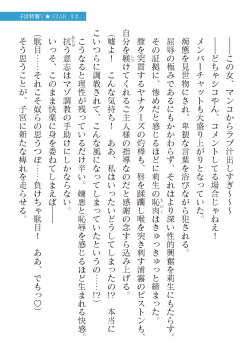 ――この女、マンコからラブ汁出しすぎ〜〜〜
どちゃシコやん、コメントしてる場合じゃねえ!
メンバーチャットも大盛り上がりとなっていた。
痴態を見世物にされ、卑猥な言葉を浴びながら犯される。
屈辱の極みであるにもかかわらず、それはより深い性的興奮を莉生にもたらす。
その証拠に、惨めだと感じるほどに莉生の恥肉はきゅっきゅっと締まった。
膣を突貫するサナダーズのペニスも、唇を蹂躙し喉を突き刺す浦霧のピストンも、
自分を躾けてくれるご主人様の指導なのだと感謝の念すら込み上げる。
(嘘よ! こんな気持ち! ああ、私はいったいどうしてしまったの!? 本当に
こいつらに調教されて、こんな風になってしまったというの……!?)
こうなると理性が残っているだけ辛い。嫌悪と恥辱を感じるほど生まれる快感。
抗う意志はマゾ調教の手助けにしかならない。
いっそ、このまま快楽に身を委ねてしまえば――
(駄目……それこそ奴らの思うつぼ……負けちゃ駄目! ああ、でもっ♡)
そう思うことが、子宮に新たな痺れを走らせる。